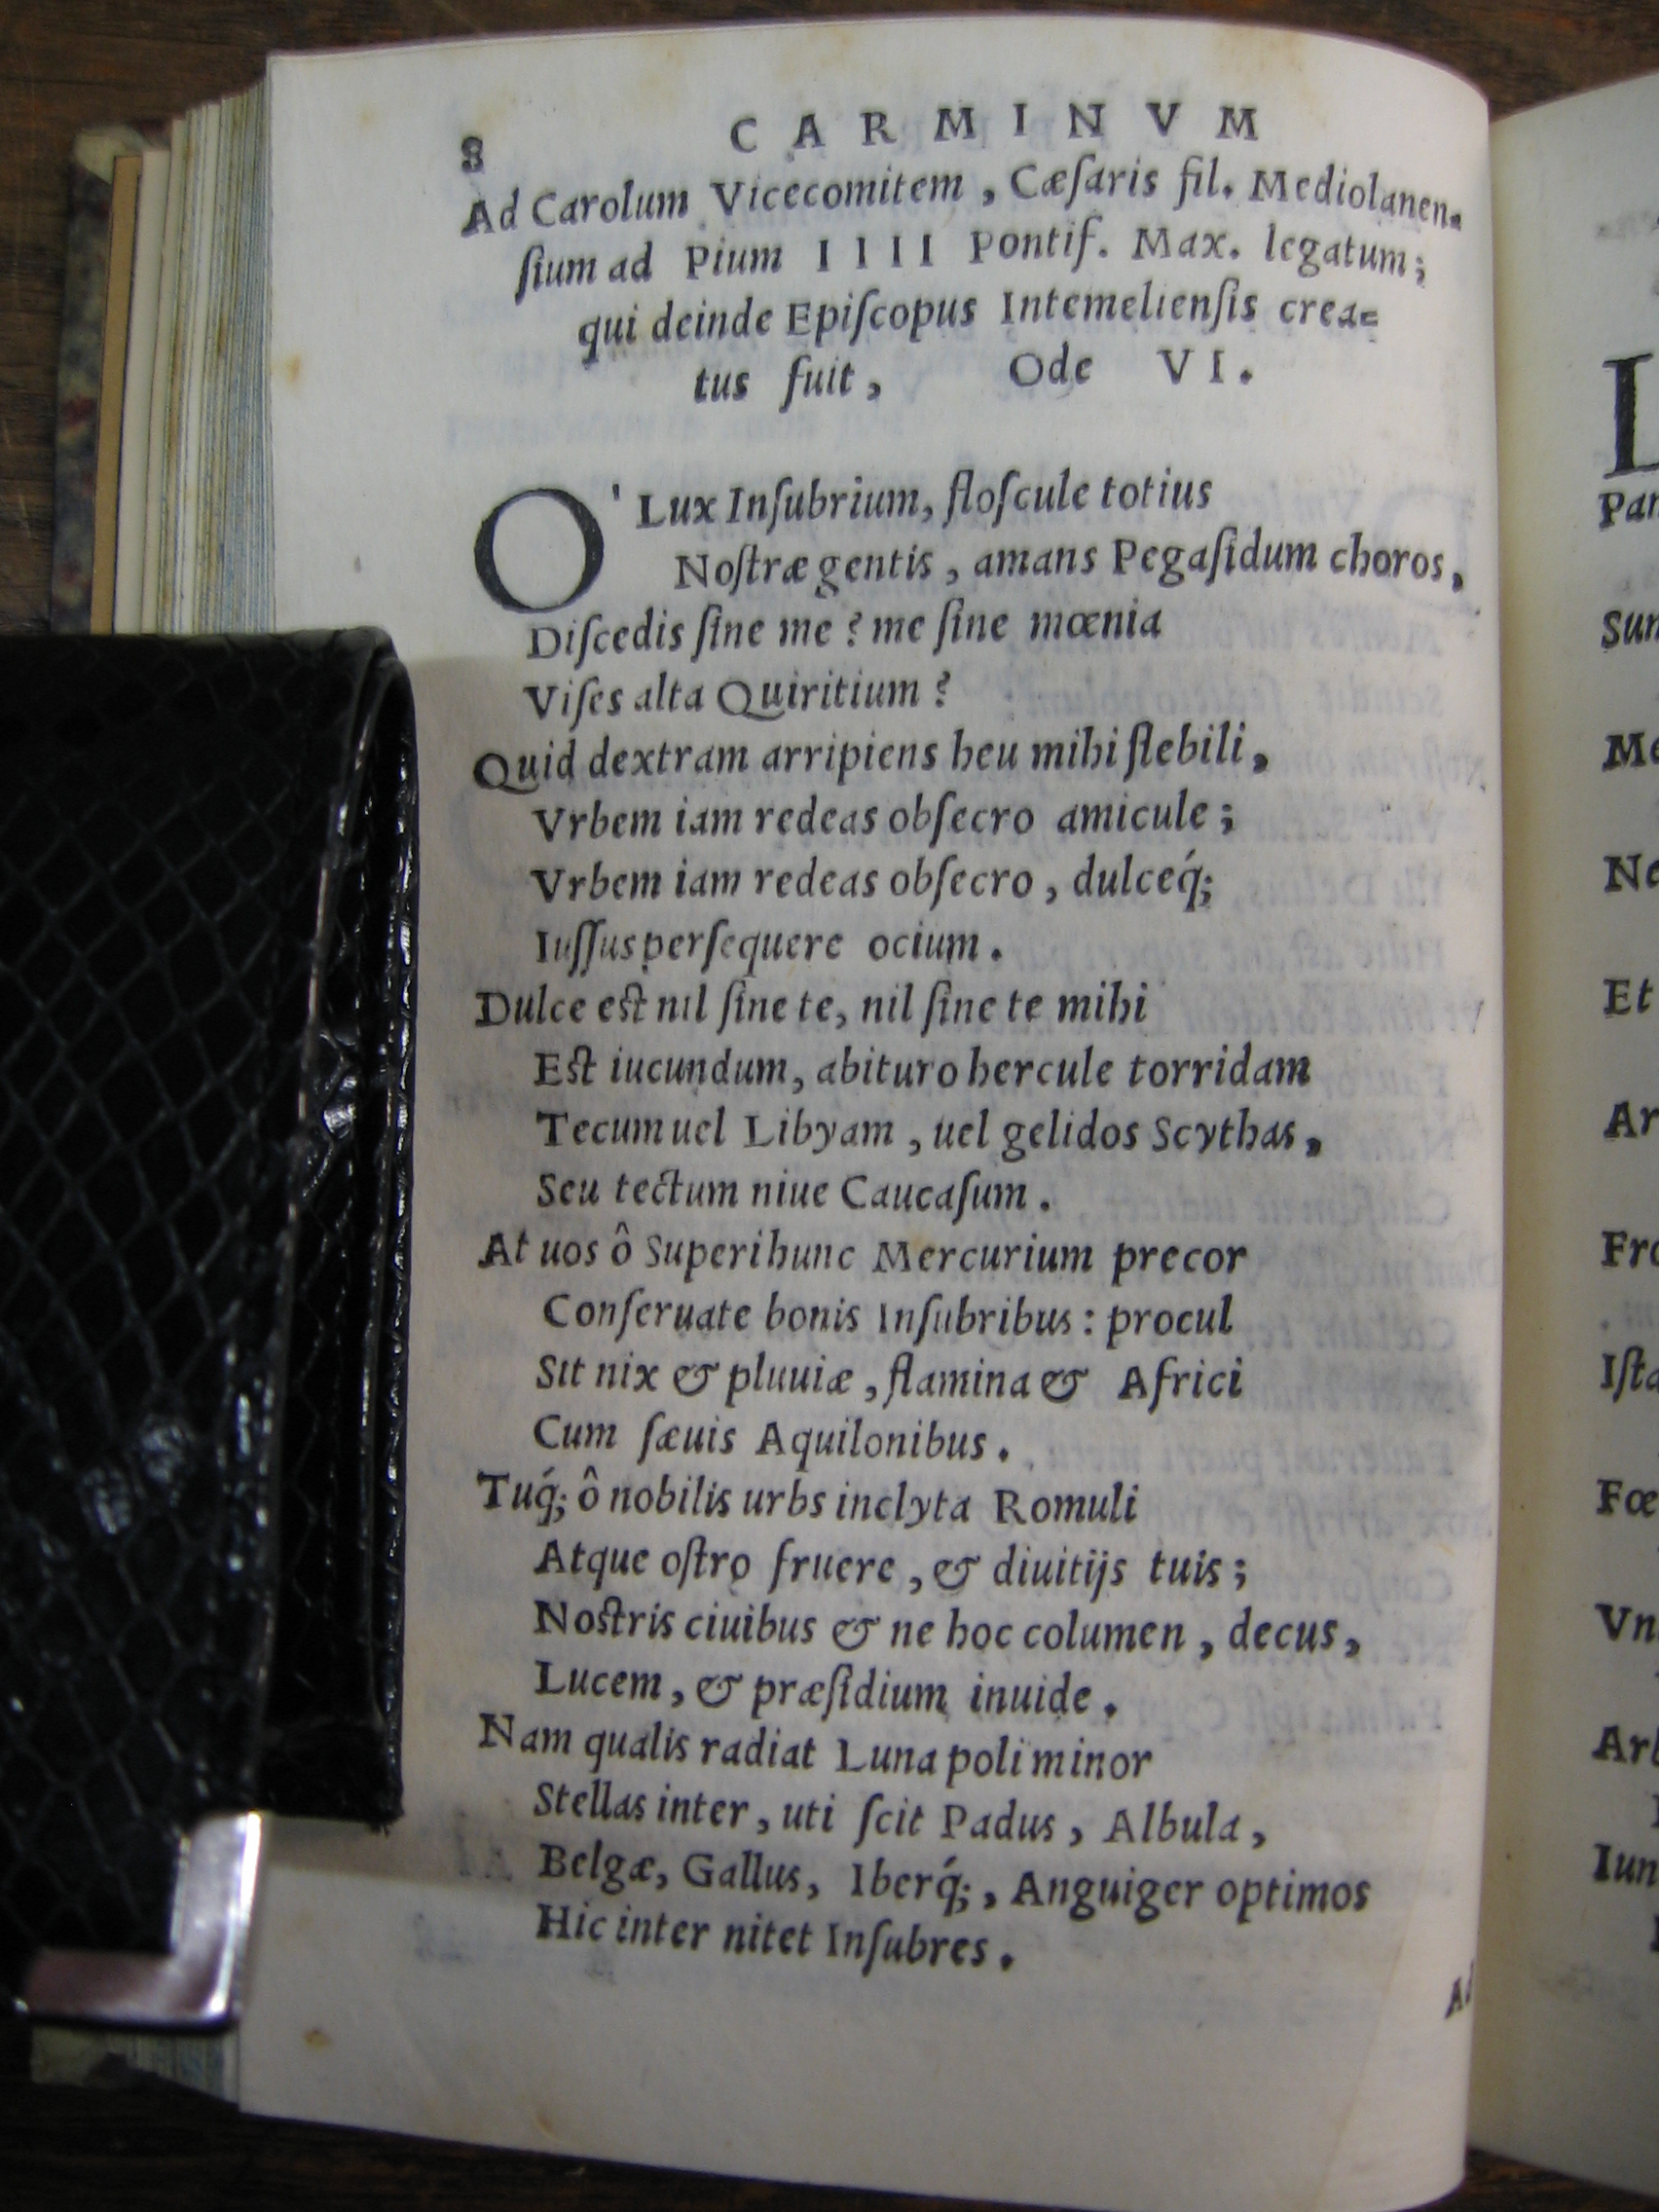 8 CARMINVM
Ad Carolum Vicecomitem, Cæſaris fil. Mediolanen-
ſium ad Pium IIII Pontif. Max. legatum;
qui deinde Epiſcopus Intemelienſis crea=
tus fuit, Ode VI.
O' Lux Inſubrium, floſcule totius
Noſtræ gentis, amans Pegaſidum choros,
Diſcedis ſine me? me ſine mœnia
Viſes alta Quiritium?
Quid dextram arripiens heu mihi flebili,
Vrbem iam redeas obſecro amicule;
Vrbem iam redeas obſecro, dulceq́;
Iuſſus perſequere ocium.
Dulce est nil ſine te, nil ſine te mihi
Est iucundum, abituro hercule torridam
Tecum uel Libyam, uel gelidos Scythas,
Seu tectum niue Caucaſum.
At uos ô Superi hunc Mercurium precor
Conſeruate bonis Inſubribus: procul
Sit nix & pluuiæ, flamina & Africi
Cum ſæuis Aquilonibus.
Tuq́; ô nobilis urbs inclyta Romuli
Atque oſtro fruere, & diuitijs tuis;
Nostris ciuibus & ne hoc columen, decus,
Lucem, & præſidium inuide.
Nam qualis radiat Luna poli minor
Stellas inter, uti ſcit Padus, Albula,
Belgæ, Gallus, Iberq́;, Anguiger optimos
Hic inter nitet Inſubres.
Ad
L
Par
Sun
Me
Ne
Et
Ar
Fro
Iſta
Fœ
Vn
Arb
Iun